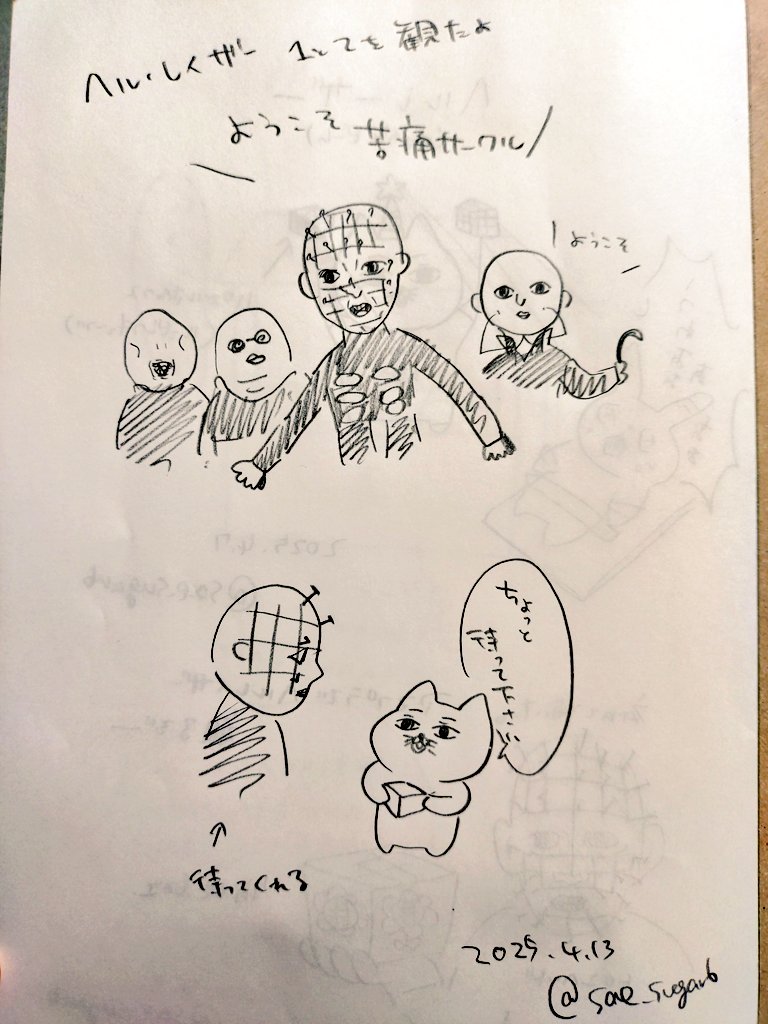 ヘルレイザー 1と2を観たよ
ようこそ 苦痛サークル
ようこそ
ちょっと
待って下さい
待ってくれる
2025.4.13
@sae_sugar6